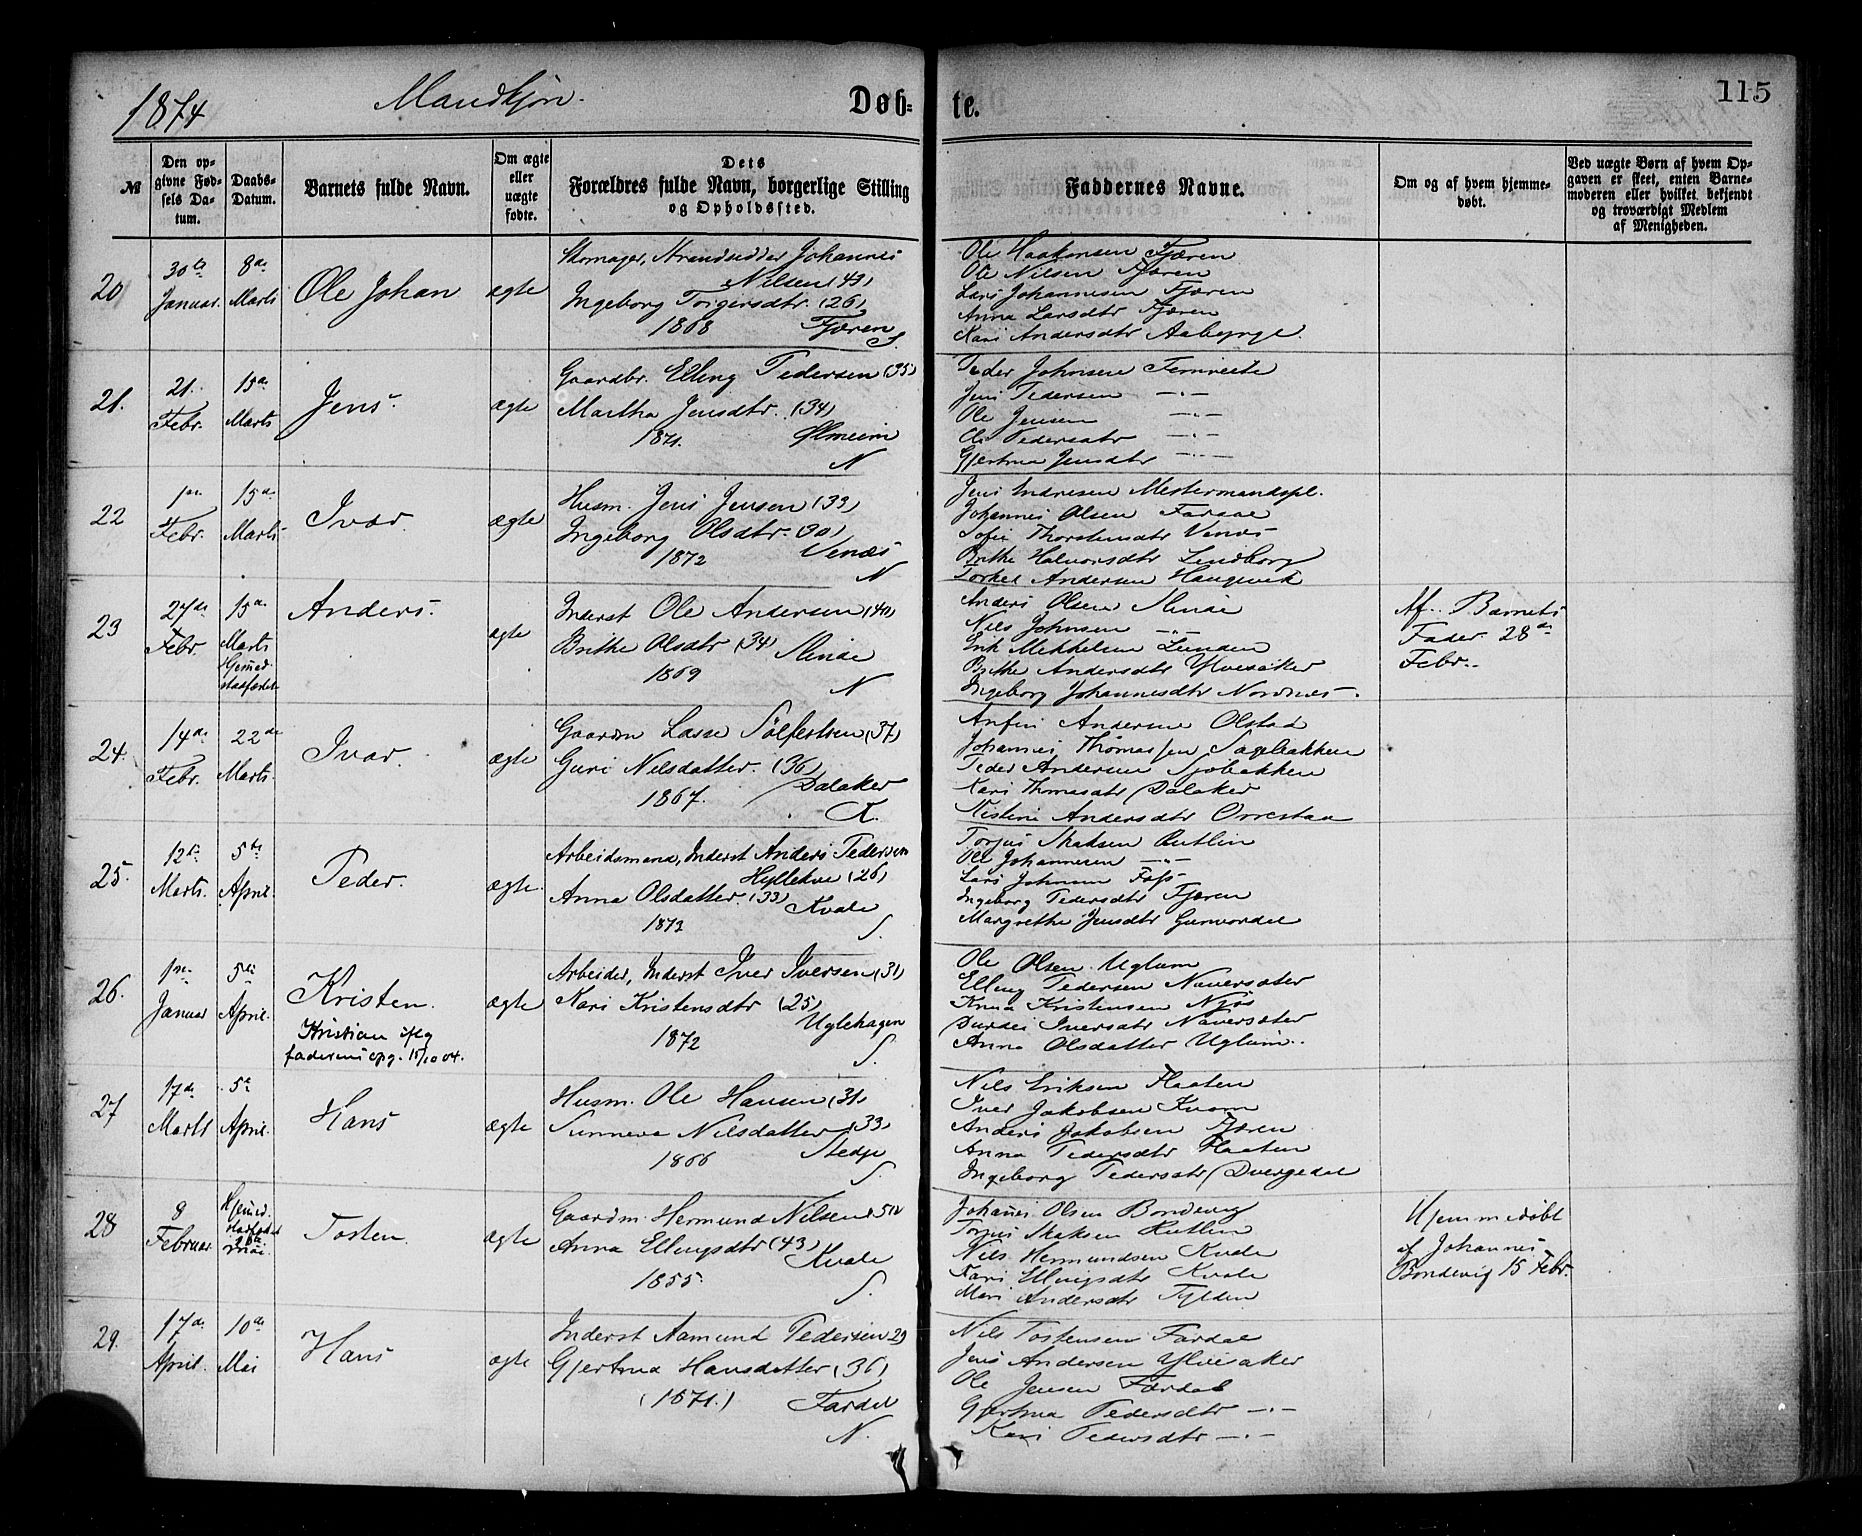 1874 Mandkjøn. Døb- te. 115
№
Den op-
givne Fød-
sels Da-
tum.
Daabs-
Datum.
Barnets fulde Navn.
Om ægte
eller
uægte
fødte.
Dets
Forældres fulde Navn, borgerlige Stilling
og Opholdssted.
Faddernes Navne.
Om og af hvem hjemme-
døbt.
Ved uægte Børn af hvem Op-
gaven er skeet, enten Barne-
moderen eller hvilket bekjendt
og troværdigt Medlem
af Menigheden.
20
30te
Januar.
8de
Marts
Ole Johan
ægte
Skomager, Strandsidder Johannes
Nilsen (43)
Ingeborg Torgersdtr. (26)
1868 Fjæren
S.
Ole Haakonsen Fjæren
Ole Nilsen Fjæren
Lars Johannesen Fjæren
Anna Larsdtr Fjæren
Kari Andersdtr Aaberge.
21.
21.
Febr.
15de
Marts
Jens.
ægte
Gaardbr. Elling Pedersen (35)
Martha Jensdtr. (34)
1871. Ølmeim
N
Peder Johnsen Fimreite
Jens Pedersen —"—
Ole Jensen —"—
Pedersdtr —"—
Gjertrud Jensdtr —"—
22
1ste
Febr.
15de
Marts
Ivar.
ægte
Husm. Jens Jensen (33)
Ingeborg Olsdtr. (30)
1872 Venæs
N
Jens Endresen Mestermandspl.
Johannes Olsen Fardal
Sofie Thorstensdtr Venæs
Brithe Halvorsdtr Lindborg
Torkel Andersen Haugmerk
23
27de
Febr.
15de
Marts
Hjemmed.
stadfæstet
Anders.
ægte
Inderst Ole Andersen (40)
Brithe Olsdtr (34) Slinde
1869
N
Anders Olsen Slinde
Nils Johnsen —"—
Erik Mikkelsen Lunden
Brithe Andersdtr Ylvesaker
Ingeborg Johannesdtr Nordnæs.
Af Barnets
Fader 28de
Febr.
24.
14de
Febr.
22de
Marts.
Ivar.
ægte
Gaardm Lasse Sølfestsen (37)
Guri Nilsdatter. (36)
1867. Dalaker
K.
Anfin Andersen Olstad
Johannes Thomassen Sagebakken
Peder Andersen Sjøbakken
Kari Thomasdtr Dalaker
Kistine Andersdtr Orrestad
25.
12te
Marts.
5te
April.
Peder.
ægte.
Arbeidsmand, Inderst Anders Pedersen
Hyllekve (26)
Anna Olsdatter (33) Kvale
1873
S.
Torjus Skaksen Rutlin
Ole Johannesen —"—
Lars Johnsen Foss
Ingeborg Pedersdtr Fjæren
Margrethe Jensdtr Gurvordal
26.
1ste
Januar
5te
April.
Kristen.
Kristian iflg
faderens opg. 15/10 04.
ægte
Arbeider, Inderst Iver Iversen (31)
Kari Kristensdtr (25)
Uglehagen
1872
S.
Ole Olsen Uglum
Elling Pedersen Navarsæter
Knud Kristensen Njøs
Durdei Iversdtr Navarsæter
Anna Olsdatter Uglum.
27
17de
Marts
5te
April.
Hans
ægte
Husm. Ole Hansen (31)
Sunneva Nilsdatter (33)
1866 Stedje
S.
Nils Eriksen Flaaten
Iver Jakobsen Kvam
Anders Jakobsen Fjæren
Anna Pedersdtr Flaaten
Ingeborg Pedersdtr Dvergedal
28
8
Februar.
Hjemmed.
stadfæstet
Mai
Tosten.
ægte
Gaardm. Hermund Nilsen 50
Anna Ellingsdtr (43) Kvale
1855.
S.
Johannes Olsen Bondevig
Torjus Skaksen Rutlin
Nils Hermundsen Kvale
Kari Ellingsdtr Kvale
Mari Andersdtr Tylden
Hjemmedøbt
af Johannes
Bondevig 15 Febr.
29.
17de
April.
10de
Mai
Hans
ægte
Inderst Aamund Pedersen 29
Gjertrud Hansdatter (36)
(1871.) Fardal
N.
Nils Tostensen Fardal
Jens Andersen Ylvisaker
Ole Jensen Fardal
Gjertrud Pedersdtr —"—
Kari Pedersdtr —"—